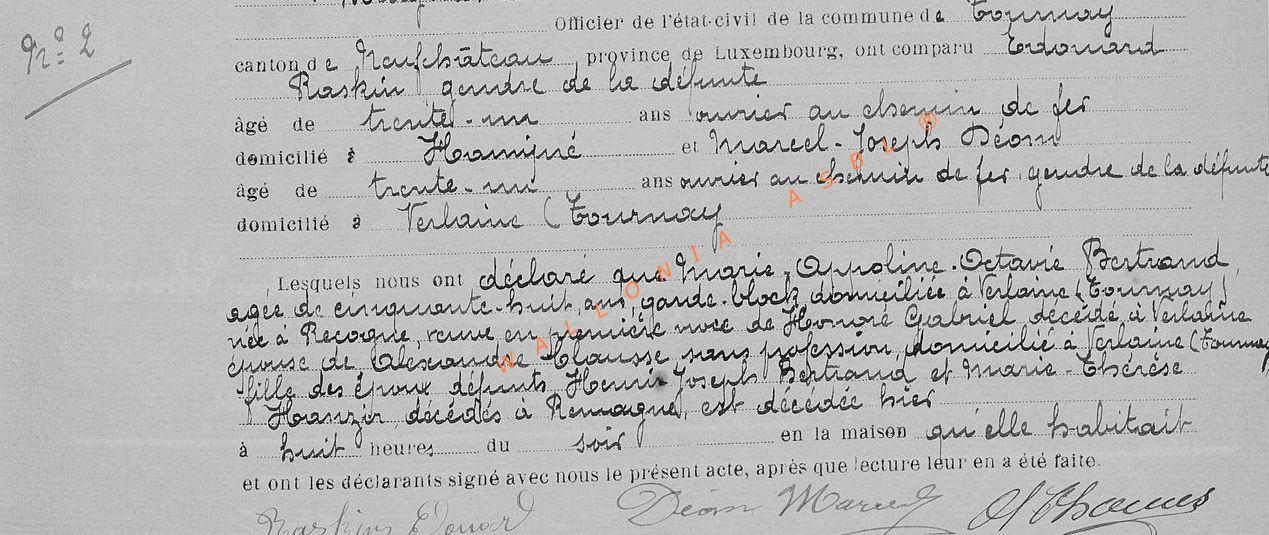 Nº 2
Officier de l'état-civil de la commune de Tournay
canton de Neufchâteau, province de Luxembourg, ont comparu Edouard
Raskin gendre de la défunte
âgé de trente-un ans ouvrier au chemin de fer
domicilié à Hamipré et Marcel-Joseph Déom
âgé de trente-un ans ouvrier au chemin de fer, gendre de la défunte
domicilié à Verlaine (Tournay
Lesquels nous ont déclaré que Marie-Appoline-Octavie Bertrand,
agée de cinquante-huit ans, garde-block domiciliée à Verlaine (Tournay)
née à Recogne, veuve en première noce de Honoré Gabriel décédé à Verlaine
épouse de Alexandre Clausse, sans profession, domicilié à Verlaine (Tournay
fille des époux défunts Henri-Joseph Bertrand et Marie-Thérèse
Hanzir, décédés à Remagne, est décédée hier
à huit heures du soir en la maison qu'elle habitait
et ont les déclarants signé avec nous le présent acte, après que lecture leur en a été faite.
Raskin Edouard Déom Marcel
WALLONIA ASBL ®